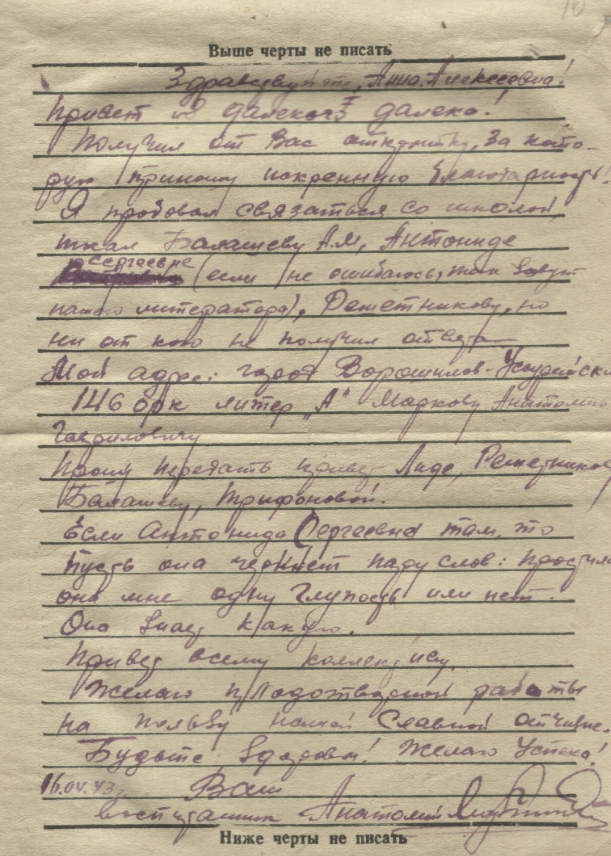 Выше черты не писать
Здравствуйте, Анна Алексеевна!
Привет из далекого далека!
Получил от Вас открытку, за кото-
рую приношу искреннюю благодарность!
Я пробовал связаться со школой,
писал Балашеву А.М, Антониде
Сергеевне (если не ошибаюсь, так зовут
нашего литератора), Решетникову, но
ни от кого не получил ответа
Мой адрес: город Ворошилов-Уссурийский
146 орк литер "А" Маркову Анатолию
Гавриловичу
Прошу передать привет Лиде, Решетникову
Балашеву, Трифоновой.
Если Антонида Сергеевна там, то
пусть она черкнет пару слов: простила
она мне одну глупость или нет.
Она знает какую.
Привет всему коллективу.
Желаю плодотворной работы
на пользу нашей Славной отчизне.
Будьте здоровы! Желаю успеха!
16.04.43. Ваш
воспитанник Анатолий
Ниже черты не писать